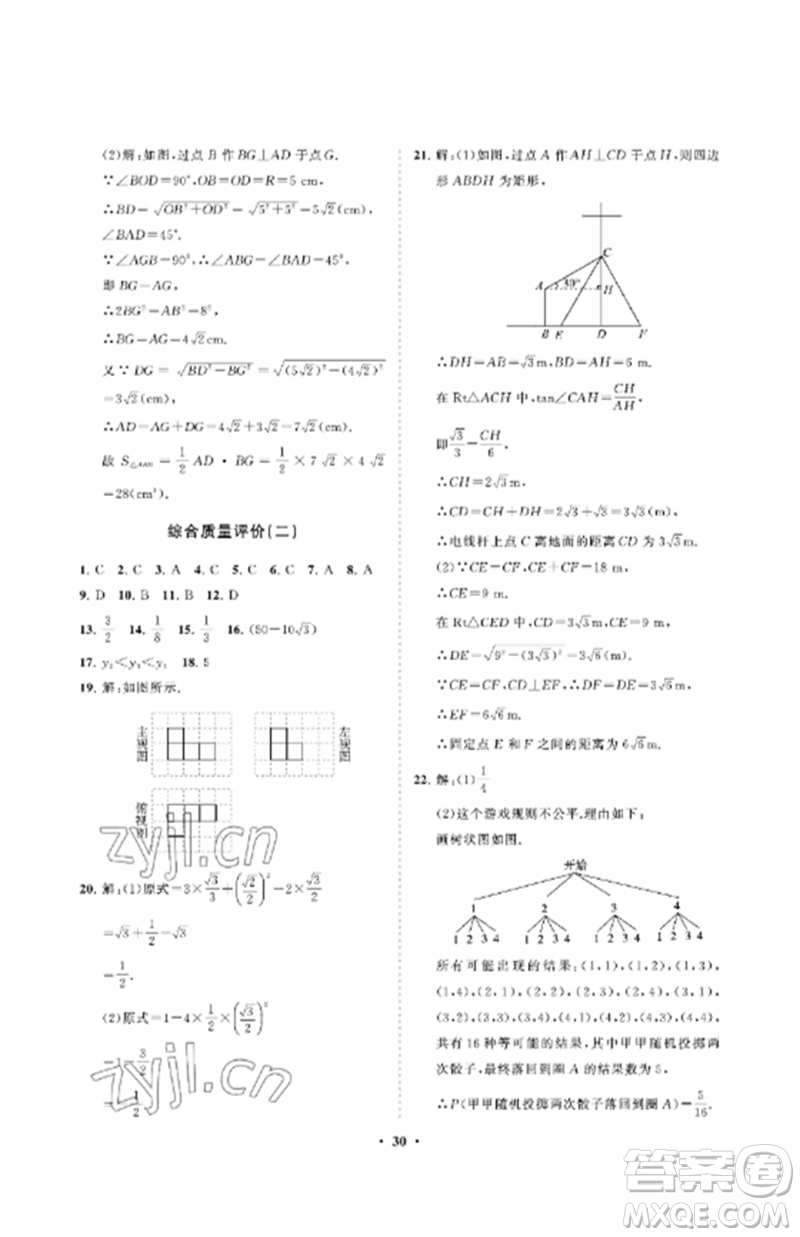 (2)解:如图,过点 B 作 BG⊥AD 于点G.
∵∠BOD=90°,OB=OD=R=5 cm,
∴BD=√(OB²+OD²)=√(5²+5²)=5√2(cm),
∠BAD=45°.
∵∠AGB=90°,∴∠ABG=∠BAD=45°,
即 BG=AG,
∴2BG²=AB²=8²,
∴BG=AG=4√2 cm.
又∵DG=√(BD²-BG²)=√((5√2)²-(4√2)²)
=3√2(cm),
∴AD=AG+DG=4√2+3√2=7√2(cm).
故 S△ABD=1/2 AD·BG=1/2×7√2×4√2
=28(cm²).
综合质量评价(二)
1. C 2. C 3. A 4. C 5. C 6. C 7. A 8. A
9. D 10. B 11. B 12. D
13. 3/2 14. 1/8 15. 1/3 16. (50-10√3)
18. 5
19. 解:如图所示.
主视图
左视图
俯视图
20. 解:(1)原式=3×√3/3+(√2/2)²-2×√3/2
=√3+1/2-√3
=1/2.
(2)原式=1-4×1/2×(√3/2)²
=1-3/2
=-1/2.
21. 解:(1)如图,过点 A 作AH⊥CD于点 H,则四边
形 ABDH 为矩形,
C
A 30° H
B E D F
∴DH=AB=√3m,BD=AH=6 m.
在 Rt△ACH 中,tan∠CAH=CH/AH,
即√3/3=CH/6,
∴CH=2√3m,
∴CD=CH+DH=2√3+√3=3√3(m).
∴电线杆上点 C 离地面的距离 CD 为 3√3 m.
(2)∵CE=CF,CE+CF=18 m,
∴CE=9 m.
在 Rt△CED 中,CD=3√3 m,CE=9 m,
∴DE=√(9²-(3√3)²)=3√6(m).
∵CE=CF,CD⊥EF,∴DF=DE=3√6 m,
∴EF=6√6 m.
∴固定点 E 和 F 之间的距离为 6√6 m.
22. 解:(1)1/4
(2)这个游戏规则不公平.理由如下:
画树状图如图.
开始
1 2 3 4
1 2 3 4 1 2 3 4 1 2 3 4 1 2 3 4
所有可能出现的结果:(1,1),(1,2),(1,3),
(1,4),(2,1),(2,2),(2,3),(2,4),(3,1),
(3,2),(3,3),(3,4),(4,1),(4,2),(4,3),(4,4),
共有 16 种等可能的结果,其中甲甲随机投掷两
次骰子,最终落回到圈 A 的结果数为 5,
∴P(甲甲随机投掷两次骰子落回到圈 A)=5/16.
· 30 ·
zyjl.cn
zyjl.cn
答案圈
MXQE.COM